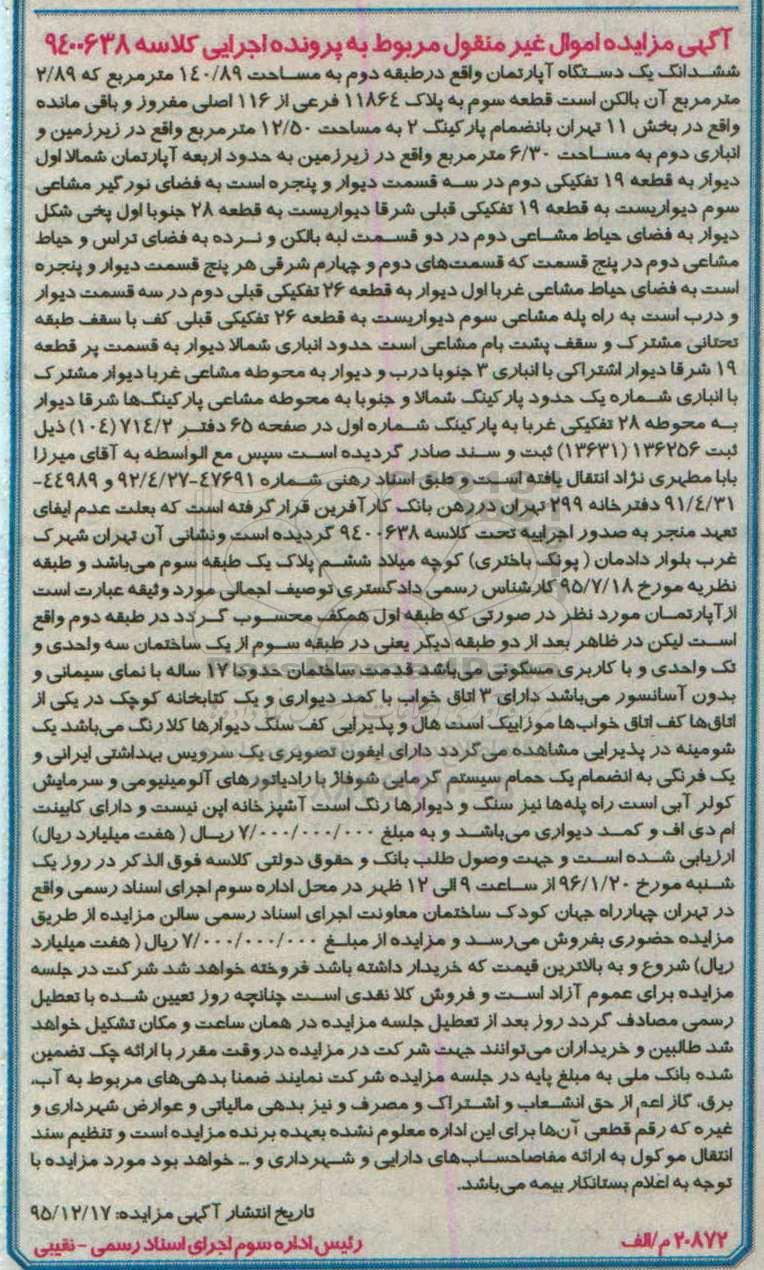 آگهی مزایده اموال غیر منقول مربوط به پرونده اجرایی کلاسه ۹۴۰۰۶۳۸
ششدانگ یک دستگاه آپارتمان واقع درطبقه دوم به مساحت ۱۴۰/۸۹ مترمربع که ۲/۸۹
مترمربع آن بالکن است قطعه سوم به پلاک ۱۱۸۶۴ فرعی از ۱۱۶ اصلی مفروز و باقی مانده
واقع در بخش ۱۱ تهران بانضمام پارکینگ ۲ به مساحت ۱۲/۵۰ مترمربع واقع در زیرزمین و
انباری دوم به مساحت ۶/۳۰ مترمربع واقع در زیرزمین به حدود اربعه آپارتمان شمالا اول
دیوار به قطعه ۱۹ تفکیکی دوم در سه قسمت دیوار و پنجره است به فضای نورگیر مشاعی
سوم دیواریست به قطعه ۱۹ تفکیکی قبلی شرقا دیواریست به قطعه ۲۸ جنوبا اول پخی شکل
دیوار به فضای حیاط مشاعی دوم در دو قسمت لبه بالکن و نرده به فضای تراس و حیاط
مشاعی دوم در پنج قسمت که قسمت‌های دوم و چهارم شرقی هر پنج قسمت دیوار و پنجره
است به فضای حیاط مشاعی غربا اول دیوار به قطعه ۲۶ تفکیکی قبلی دوم در سه قسمت دیوار
و درب است به راه پله مشاعی سوم دیواریست به قطعه ۲۶ تفکیکی قبلی کف با سقف طبقه
تحتانی مشترک و سقف پشت بام مشاعی است حدود انباری شمالا دیوار به قسمت پر قطعه
۱۹ شرقا دیوار اشتراکی با انباری ۳ جنوبا درب و دیوار به محوطه مشاعی غربا دیوار مشترک
با انباری شماره یک حدود پارکینگ شمالا و جنوبا به محوطه مشاعی پارکینگ‌ها شرقا دیوار
به محوطه ۲۸ تفکیکی غربا به پارکینگ شماره اول در صفحه ۶۵ دفتر ۷۱۴/۲ (۱۰۴) ذیل
ثبت ۱۳۶۲۵۶ (۱۳۶۳۱) ثبت و سند صادر گردیده است سپس مع الواسطه به آقای میرزا
بابا مطهری نژاد انتقال یافته است و طبق اسناد رهنی شماره ۴۷۶۹۱-۹۲/۴/۲۷ و ۴۴۹۸۹-
۹۱/۴/۳۱ دفترخانه ۲۹۹ تهران دررهن بانک کارآفرین قرارگرفته است که بعلت عدم ایفای
تعهد منجر به صدور اجراییه تحت کلاسه ۹۴۰۰۶۳۸ گردیده است ونشانی آن تهران شهرک
غرب بلوار دادمان (پونک باختری) کوچه میلاد ششم پلاک یک طبقه سوم می‌باشد و طبقه
نظریه مورخ ۹۵/۷/۱۸ کارشناس رسمی دادگستری توصیف اجمالی مورد وثیقه عبارت است
ازآپارتمان مورد نظر در صورتی که طبقه اول همکف محسوب گردد در طبقه دوم واقع
است لیکن در ظاهر بعد از دو طبقه دیگر یعنی در طبقه سوم از یک ساختمان سه واحدی و
تک واحدی و با کاربری مسکونی می‌باشد قدمت ساختمان حدودا ۱۷ ساله با نمای سیمانی و
بدون آسانسور می‌باشد دارای ۳ اتاق خواب با کمد دیواری و یک کتابخانه کوچک در یکی از
اتاق‌ها کف اتاق خواب‌ها موزاییک است هال و پذیرایی کف سنگ دیوارها کلا رنگ می‌باشد یک
شومینه در پذیرایی مشاهده می‌گردد دارای ایفون تصویری یک سرویس بهداشتی ایرانی و
یک فرنگی به انضمام یک حمام سیستم گرمایی شوفاژ با رادیاتورهای آلومینیومی و سرمایش
کولر آبی است راه پله‌ها نیز سنگ و دیوارها رنگ است آشپزخانه اپن نیست و دارای کابینت
ام دی اف و کمد دیواری می‌باشد و به مبلغ ۷/۰۰۰/۰۰۰/۰۰۰ ریال (هفت میلیارد ریال)
ارزیابی شده است و جهت وصول طلب بانک و حقوق دولتی کلاسه فوق الذکر در روز یک
شنبه مورخ ۹۶/۱/۲۰ از ساعت ۹ الی ۱۲ ظهر در محل اداره سوم اجرای اسناد رسمی واقع
در تهران چهارراه جهان کودک ساختمان معاونت اجرای اسناد رسمی سالن مزایده از طریق
مزایده حضوری بفروش می‌رسد و مزایده از مبلغ ۷/۰۰۰/۰۰۰/۰۰۰ ریال (هفت میلیارد
ریال) شروع و به بالاترین قیمت که خریدار داشته باشد فروخته خواهد شد شرکت در جلسه
مزایده برای عموم آزاد است و فروش کلا نقدی است چنانچه روز تعیین شده با تعطیل
رسمی مصادف گردد روز بعد از تعطیل جلسه مزایده در همان ساعت و مکان تشکیل خواهد
شد طالبین و خریداران می‌توانند جهت شرکت در مزایده در وقت مقرر با ارائه چک تضمین
شده بانک ملی به مبلغ پایه در جلسه مزایده شرکت نمایند ضمنا بدهی‌های مربوط به آب،
برق، گاز اعم از حق انشعاب و اشتراک و مصرف و نیز بدهی مالیاتی و عوارض شهرداری و
غیره که رقم قطعی آن‌ها برای این اداره معلوم نشده بعهده برنده مزایده است و تنظیم سند
انتقال موکول به ارائه مفاصاحساب‌های دارایی و شهرداری و ... خواهد بود مورد مزایده با
توجه به اعلام بستانکار بیمه می‌باشد.
تاریخ انتشار آگهی مزایده: ۹۵/۱۲/۱۷
۲۰۸۷۲ م/الف رئیس اداره سوم اجرای اسناد رسمی - نقیبی